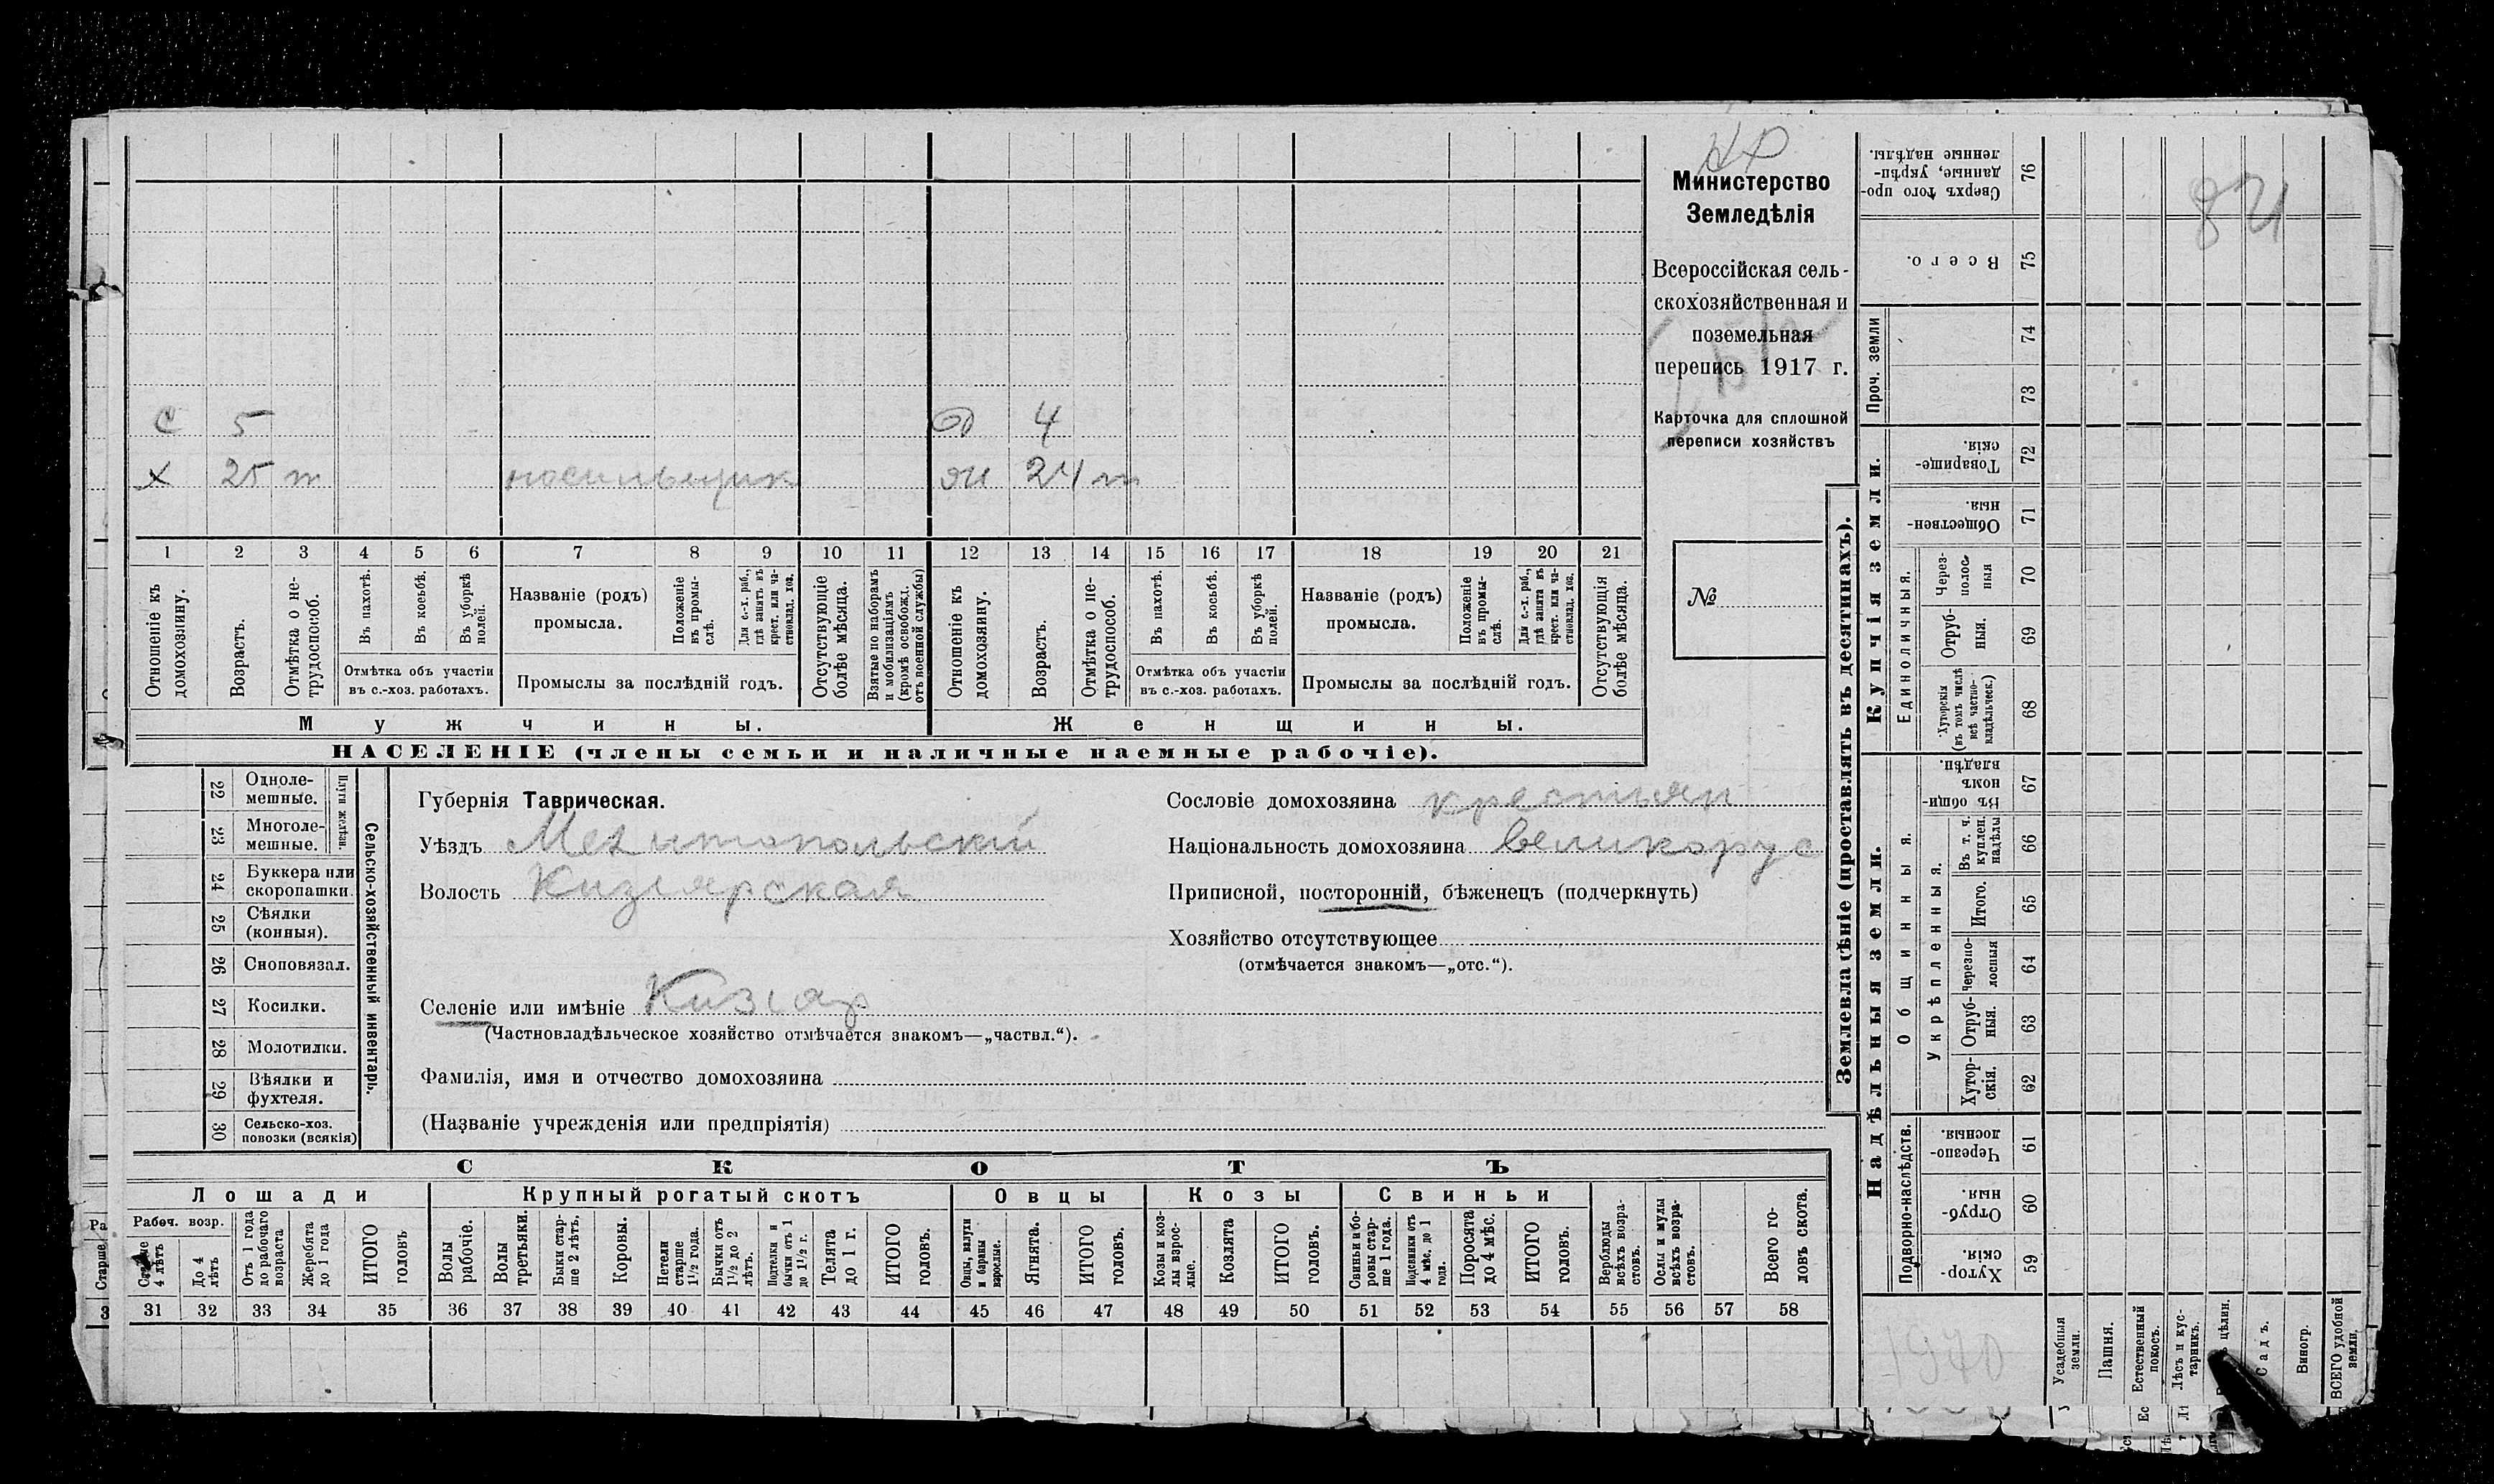 НР
Министерство
Земледѣлія
Всероссійская сель-
скохозяйственная и
поземельная
перепись 1917 г.
Карточка для сплошной
переписи хозяйствъ
№
с 5 4
х 25 т носильщик 24 т
1 2 3 4 5 6 7 8 9 10 11 12 13 14 15 16 17 18 19 20 21
Отношеніе къ домохозяину.
Возрастъ.
Отмѣтка о не-трудоспособ.
Въ пахотѣ.
Въ косьбѣ.
Въ уборкѣ полей.
Отмѣтка объ участіи
въ с.-хоз. работахъ.
Названіе (родъ)
промысла.
Положеніе въ промы-слѣ.
Для с.-х. раб., гдѣ занятъ въ крест. или ча-стновлад. хоз.
Промыслы за послѣдній годъ.
Отсутствующіе болѣе мѣсяца.
Взятые по наборамъ и мобилизаціямъ (кромѣ освобожд. отъ военной службы)
Отношеніе къ домохозяину.
Возрастъ.
Отмѣтка о не-трудоспособ.
Въ пахотѣ.
Въ косьбѣ.
Въ уборкѣ полей.
Отмѣтка объ участіи
въ с.-хоз. работахъ.
Названіе (родъ)
промысла.
Положеніе въ промы-слѣ.
Для с.-х. раб., гдѣ занята въ крест. или ча-стновлад. хоз.
Промыслы за послѣдній годъ.
Отсутствующія болѣе мѣсяца.
Мужчины. Женщины.
НАСЕЛЕНІЕ (члены семьи и наличные наемные рабочіе).
22 Одноле-мешные.
23 Многоле-мешные.
Плуги желѣзн.
24 Буккера или скоропашки.
25 Сѣялки (конныя).
26 Сноповязал.
27 Косилки.
28 Молотилки.
29 Вѣялки и фухтеля.
30 Сельско-хоз. повозки (всякія)
Сельско-хозяйственный инвентарь.
Губернія Таврическая.
Уѣздъ Мелитопольскій
Волость Кизіярская
Селеніе или имѣніе Кизіяр
(Частновладѣльческое хозяйство отмѣчается знакомъ—„частвл.“).
Фамилія, имя и отчество домохозяина
(Названіе учрежденія или предпріятія)
Сословіе домохозяина крестьян
Національность домохозяина великорус
Приписной, посторонній, бѣженецъ (подчеркнуть)
Хозяйство отсутствующее
(отмѣчается знакомъ—„отс.“).
СКОТЪ
Лошади Крупный рогатый скотъ Овцы Козы Свиньи
Рабоч. возр.
Старше 4 лѣтъ
До 4 лѣтъ
Отъ 1 года до рабочаго возраста
Жеребята до 1 года
ИТОГО головъ
Волы рабочіе.
Волы третьяки.
Быки стар-ше 2 лѣтъ.
Коровы.
Нетели старше 1½ года.
Бычки отъ 1½ до 2 лѣтъ.
Подтелки и бычки отъ 1 до 1½ г.
Телята до 1 г.
ИТОГО головъ.
Овцы, валухи и бараны взрослые.
Ягнята.
ИТОГО головъ.
Козы и коз-лы взрос-лые.
Козлята
ИТОГО головъ.
Свиньи и бо-ровы стар-ше 1 года.
Подсвинки отъ 4 мѣс. до 1 года.
Поросята до 4 мѣс.
ИТОГО головъ.
Верблюды всѣхъ возра-стовъ.
Ослы и мулы всѣхъ возра-стовъ.
Всего го-ловъ скота.
31 32 33 34 35 36 37 38 39 40 41 42 43 44 45 46 47 48 49 50 51 52 53 54 55 56 57 58
Землевладѣніе (проставлять въ десятинахъ).
Купчія земли.
Надѣльныя земли.
Сверхъ того про-данные, укрѣп-ленные надѣлы. 76
Всего. 75
Проч. земли 74 73
Товарище-скія 72
Обществен-ныя 71
Единоличныя.
Через-полос-ныя 70
Отруб-ныя. 69
Хуторскія (въ томъ числѣ всѣ частно-владѣльческ.) 68
Общинныя.
Въ общин-номъ владѣн. 67
Укрѣпленныя.
Въ т. ч. куплен. надѣлы 66
Итого. 65
Черезпо-лосныя 64
Отруб-ныя. 63
Хутор-скія. 62
Подворно-наслѣдств.
Черезпо-лосныя. 61
Отруб-ныя. 60
Хутор-скія. 59
Усадебныя земли.
Пашня.
Естественный покосъ.
Лѣсъ и кус-тарникъ.
цѣлин.
Садъ.
Виногр.
ВСЕГО удобной земли.
1970